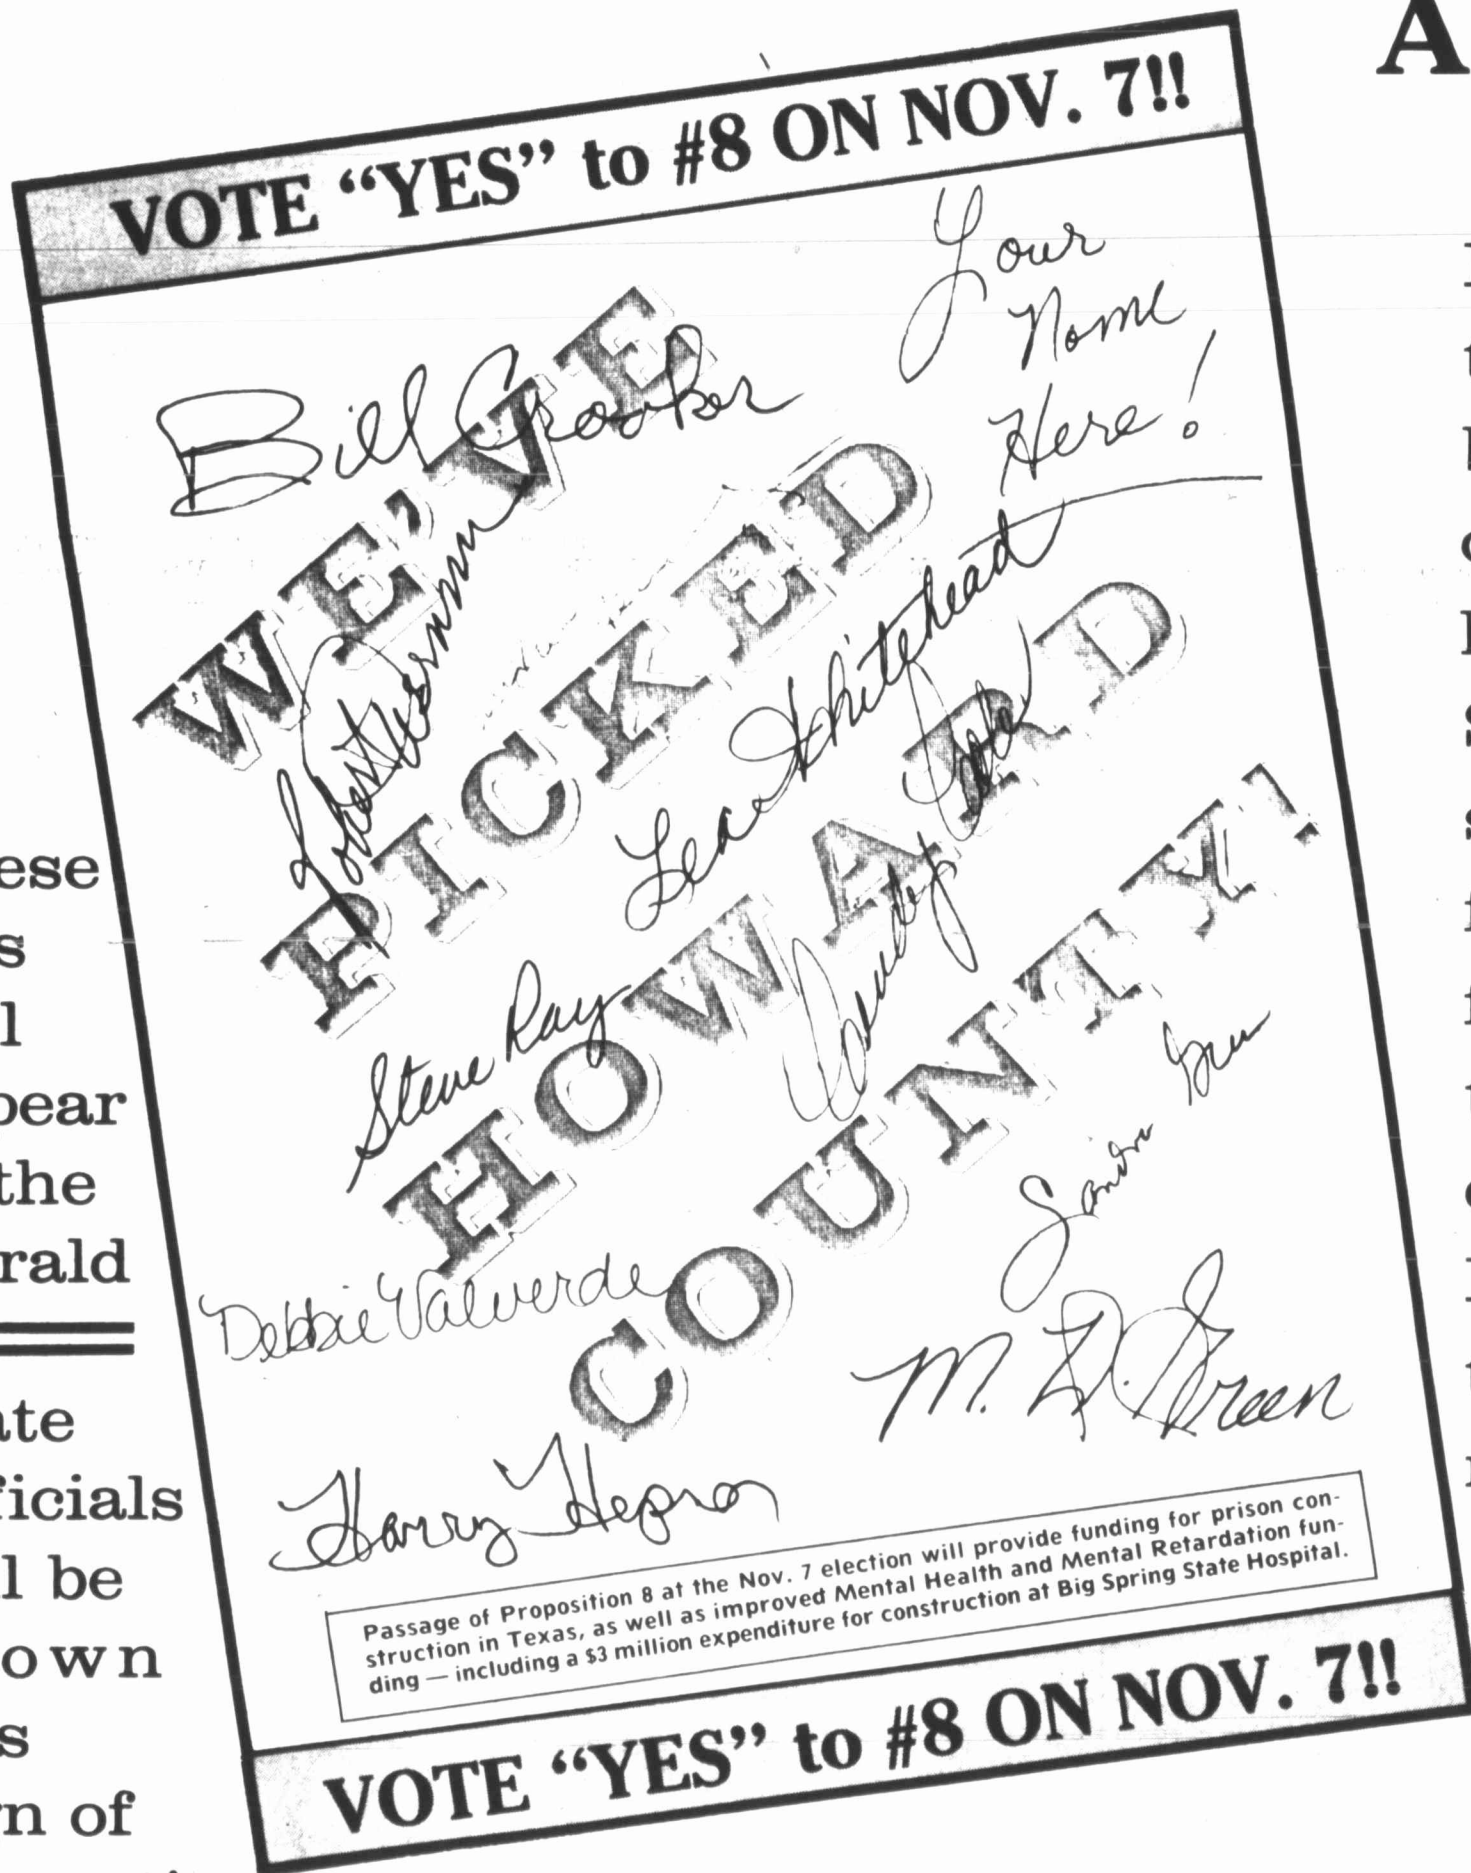 A
VOTE “YES” to #8 ON NOV. 7!!
Your
Name
Here!
Bill Crooker
WE'VE
PICKED
HOWARD
COUNTY!
Lea Whitehead
Steve Ray
Sandra
Debbie Valverde
M. D. Green
Harry
Passage of Proposition 8 at the Nov. 7 election will provide funding for prison con-
struction in Texas, as well as improved Mental Health and Mental Retardation fun-
ding — including a $3 million expenditure for construction at Big Spring State Hospital.
VOTE “YES” to #8 ON NOV. 7!!
ese
s
l
pear
the
rald
ate
ficials
l be
own
s
n of